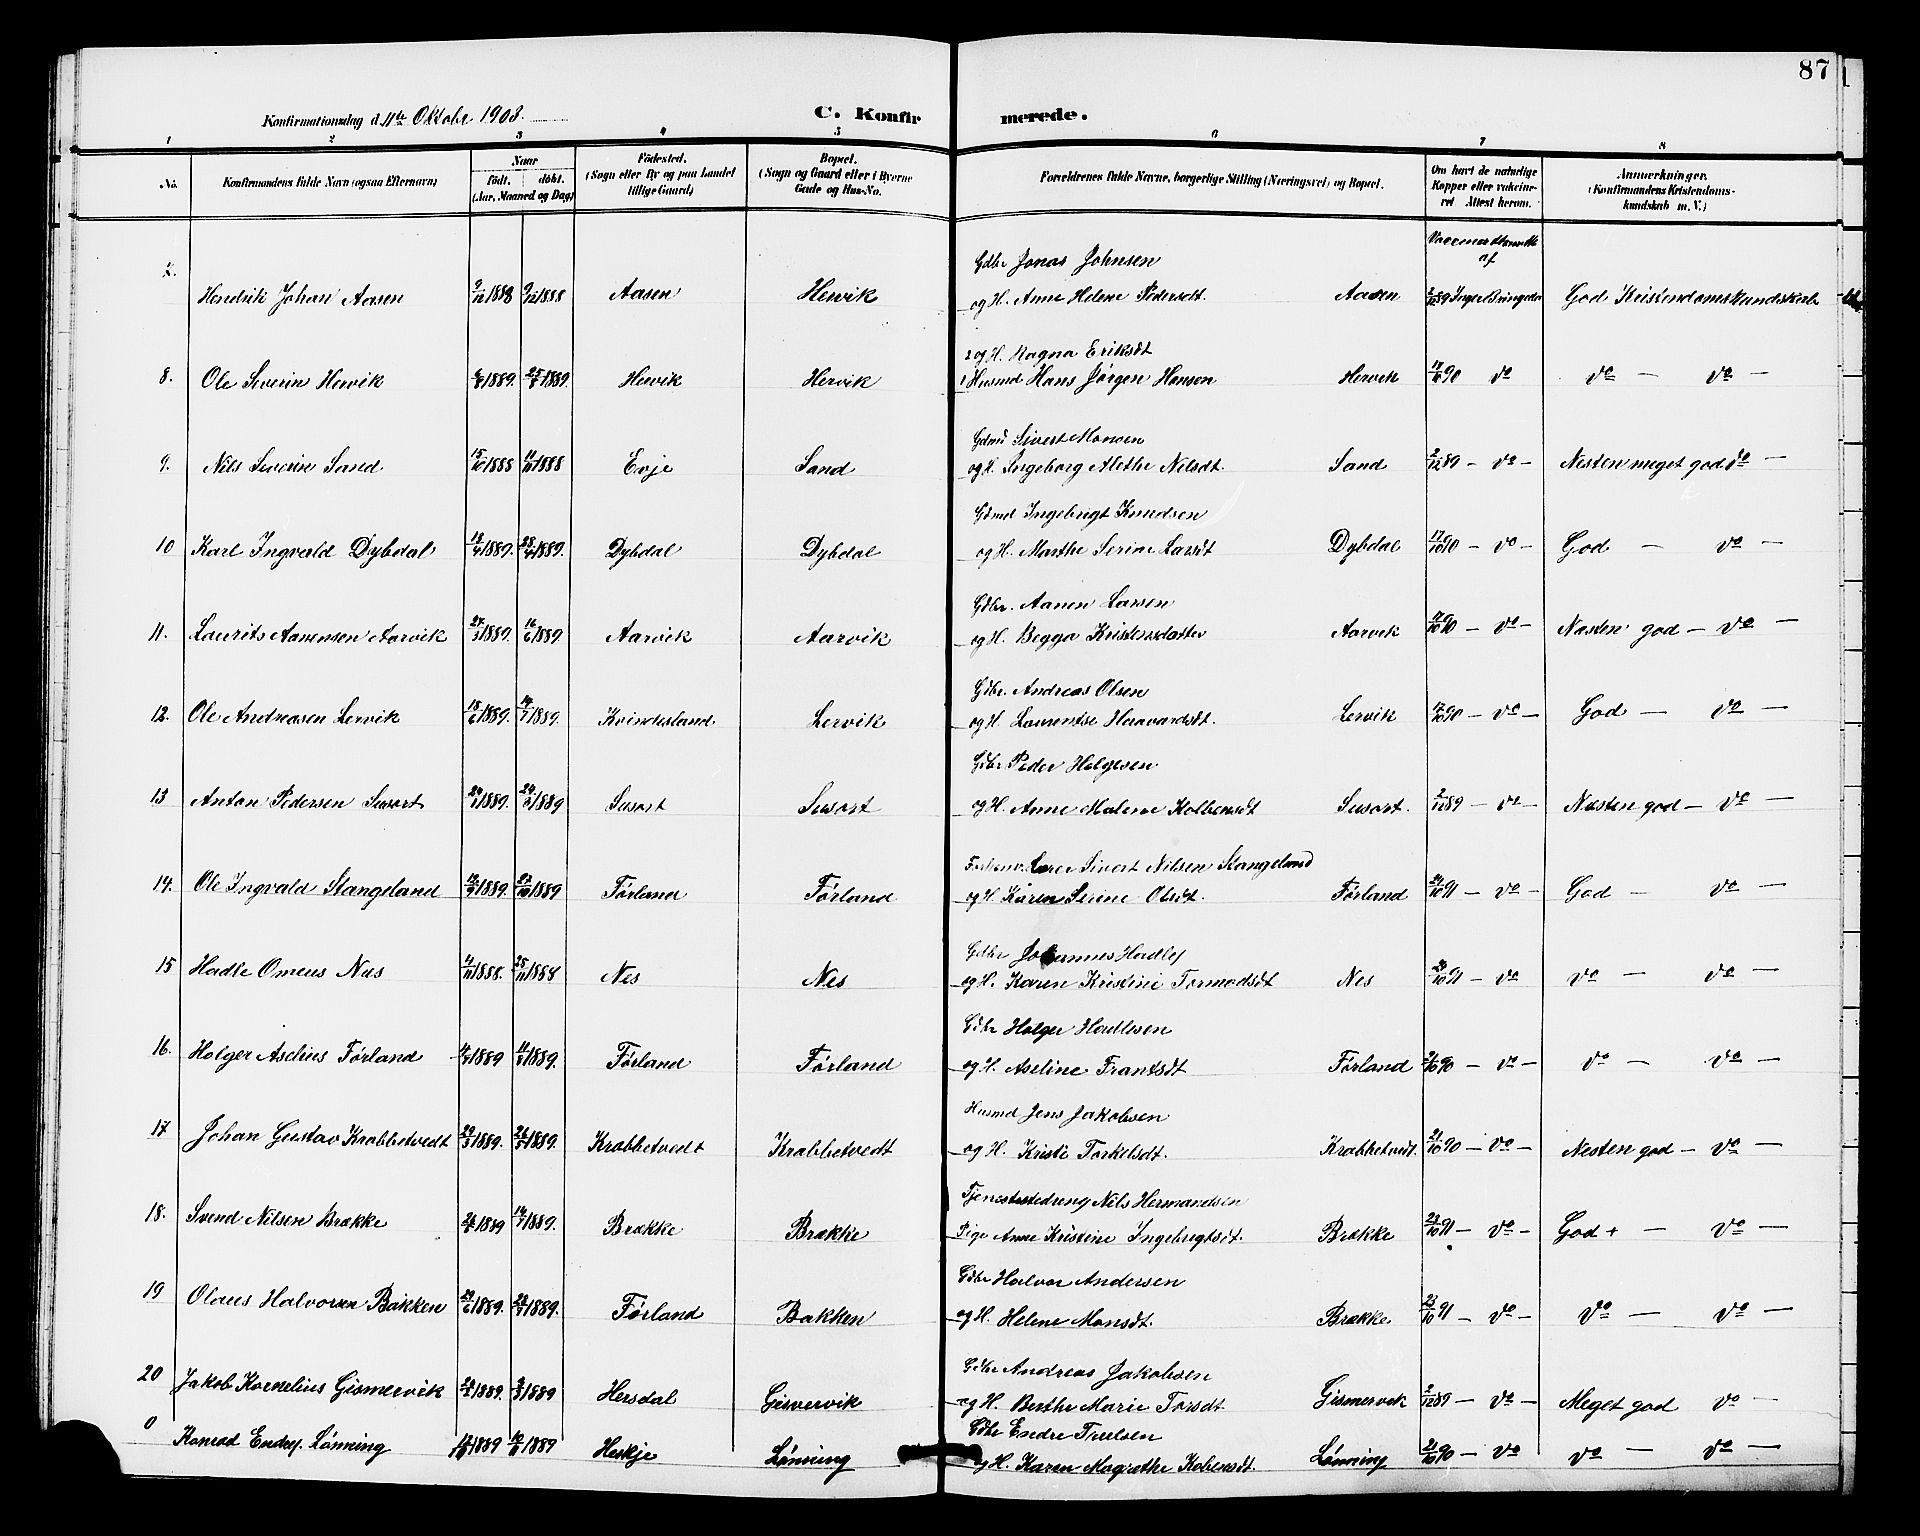 87
Konfirmationsdag d. 11te Oktober 1903.
C. Konfirmerede.
1 2 3 4 5 6 7 8
No. Konfirmandens fulde Navn (ogsaa Efternavn) Naar født. døbt. (Aar, Maaned og Dag) Fødested. (Sogn eller By og paa Landet tillige Gaard) Bopæl. (Sogn og Gaard eller i Byerne Gade og Hus-No. Forældrenes fulde Navne, borgerlige Stilling (Næringsvei) og Bopæl. Om havt de naturlige Kopper eller vakcineret Attest herom. Anmærkninger. (Konfirmandens Kristendomskundskab m. V.)
Gdbr Jonas Johnsen
7. Hendrik Johan Aasen 9/12 1888 9/12 1888 Aasen Hervik og H. Anne Helene Pedersdt. Aasen 2/12 89 God Kristendomskundskab
2 og H. Ragna Eriksdt
8. Ole Severin Hervik 1889. 25/8 1889. Hervik Hervik 1 Husmd Hans Jørgen Hansen Hervik 17/10 90 do do — do —
Gdmd Sivert Monsen
9. Nils Severin Sand 15/10 1888 11/11 1888 Evje Sand og H. Ingeborg Alethe Nilsdt. Sand 2/12 89 — do — Nesten meget god do —
Gdmd Ingebrigt Knudsen
10 Karl Ingvald Dybdal 13/4 1889. 28/4 1889. Dybdal Dybdal og H. Marthe Serine Larsdt Dybdal 17/10 90 — do — God — do —
Gdbr. Aanen Larsen
11. Laurits Aanensen Aarvik 27/3 1889. 16/6 1889 Aarvik Aarvik og H. Begga Kristensdatter Aarvik 17/10 90 — do — Næsten god — do —
Gdbr. Andreas Olsen
12. Ole Andreasen Lervik 18/6 1889. 14/7 1889. Kvindesland Lervik og H. Laurentse Haavardsdt. Lervik 17/10 90 — do — God — do —
Gdbr Peder Helgesen
13 Anton Pedersen Susort 1889. 1889 Susort Susort og H. Anne Malene Kolbensdt Susort. 2/12 89 — do — Næsten god — do —
Sivert Nilsen Stangeland
14. Ole Ingvald Stangeland 1889. 27/10 1889 Førland Førland og H. Karen Serine Olsdt. Førland 21/10 91 — do — God — do —
Gdbr Johannes Hadlesf
15 Hadle Omeus Næs 4/11 1888. 25/11 1888 Nes Nes og H. Karen Kristine Tormodsdt Nes 91 — do do — do —
Gdbr Holger Hadlesen
16. Holger Aselius Førland 1889 1889. Førland Førland og H. Aseline Frantsdt Førland 21/10 90 — do — do — do —
Husmd Jens Jakobsen
17 Johan Gustav Krabbetvedt 29/3 1889. 26/5 1889. Krabbetvedt Krabbetvedt og H. Kristi Torkelsdt. Krabbetvedt. 21/10 90 — do — Nesten god — do —
Tjenestedreng Nils Hermandsen
18. Svend Nilsen Brække 1889 14/7 1889. Brække Brække Pige Anne Kristine Ingebrigtsdt. Brække 23/10 91 — do — God + — do —
Gdbr Halvor Andersen
19 Olaus Halvorsen Bakken 29/6 1889. 28/7 1889. Førland Bakken og H. Helene Monsdt. Brække 23/10 91 — do — do — do —
Gdbr Andreas Jakobsen
20 Jakob Kornelius Gismervik 24/2 1889. 3/3 1889 Hersdal Gisvervik og H. Berthe Marie Torsdt Gismervik 2/12 89 — do — Meget god do —
Gdbr Endre Truelsen
0 Konrad Endresf. Lønning 1889 1889 Heskje Lønning og H. Karen Magrethe Kobensdt. Lønning 21/10 90 — do do — do —